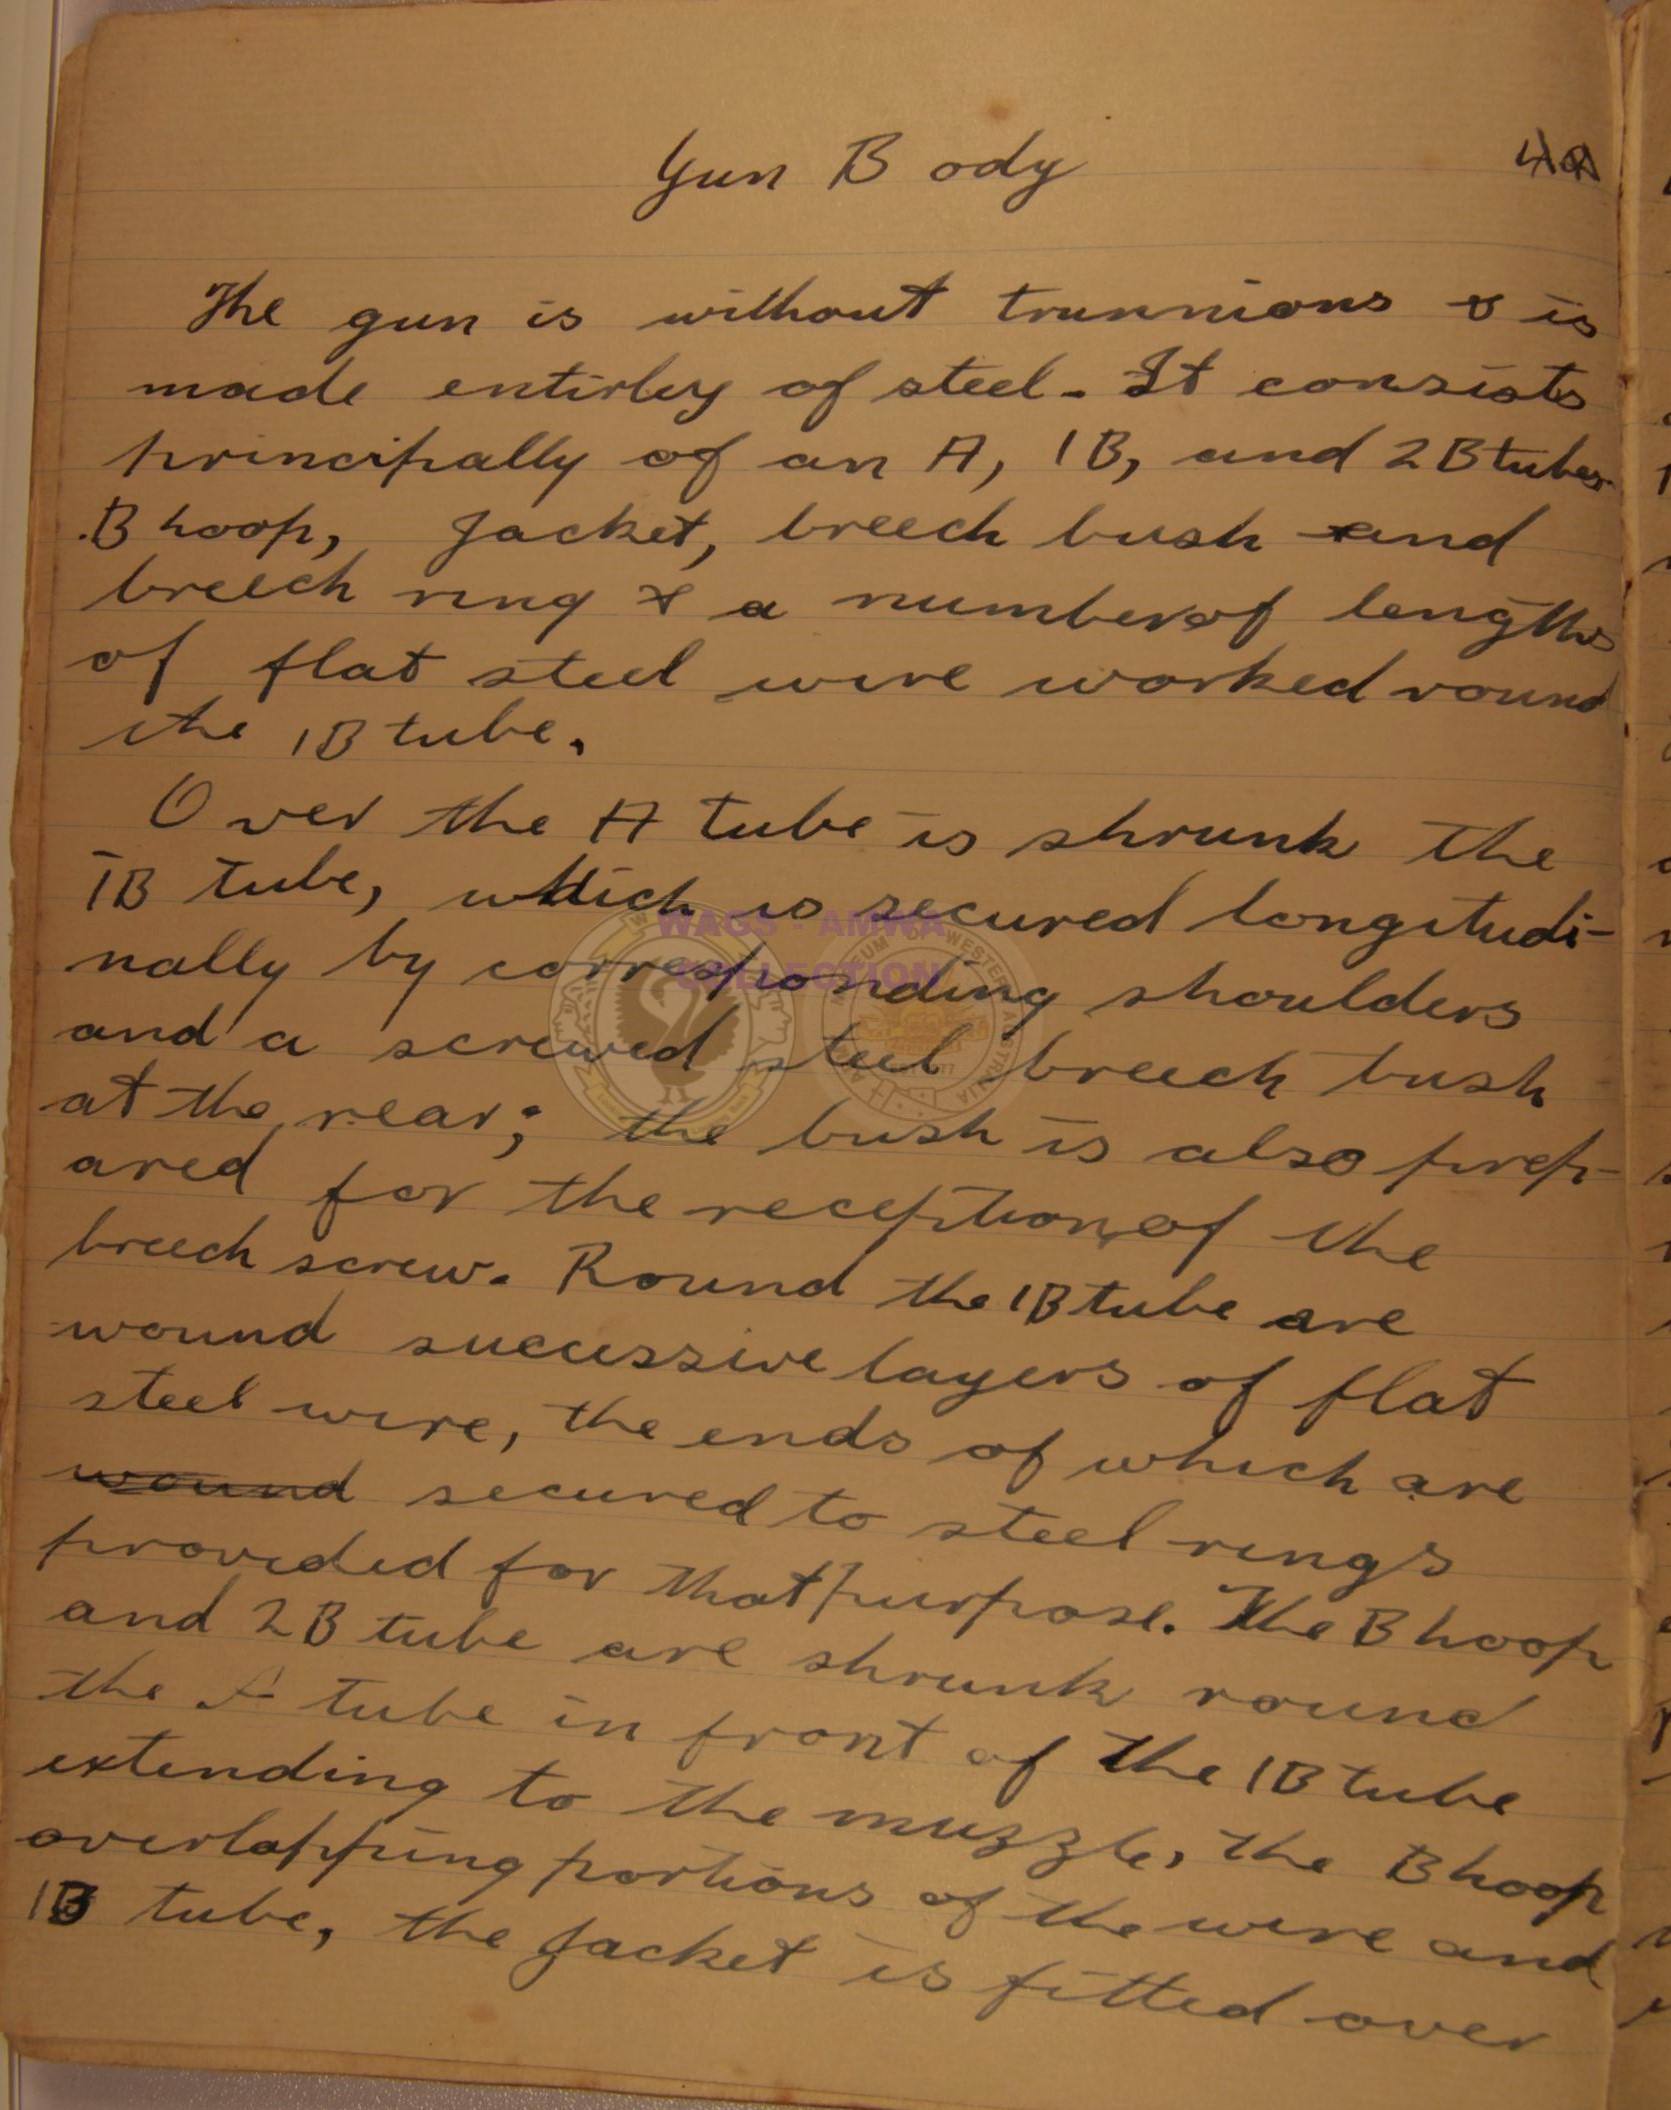 Gun Body
The gun is without trunnions & is
made entirley of steel. It consists
principally of an A, 1B, and 2B tubes
B hoop, Jacket, breech bush and
breech ring & a number of lengths
of flat steel wire worked round
the 1B tube.
Over the A tube is shrunk the
1B tube, which is secured longitudi-
nally by corresponding shoulders
and a screwed steel breech bush
at the rear; the bush is also prep-
ared for the reception of the
breech screw. Round the 1B tube are
wound successive layers of flat
steel wire, the ends of which are
wound secured to steel rings
provided for that purpose. The B hoop
and 2B tube are shrunk round
the A tube in front of the 1B tube
extending to the muzzle, the B hoop
overlapping portions of the wire and
1B tube, the Jacket is fitted over
WAGS - AMWA
COLLECTION